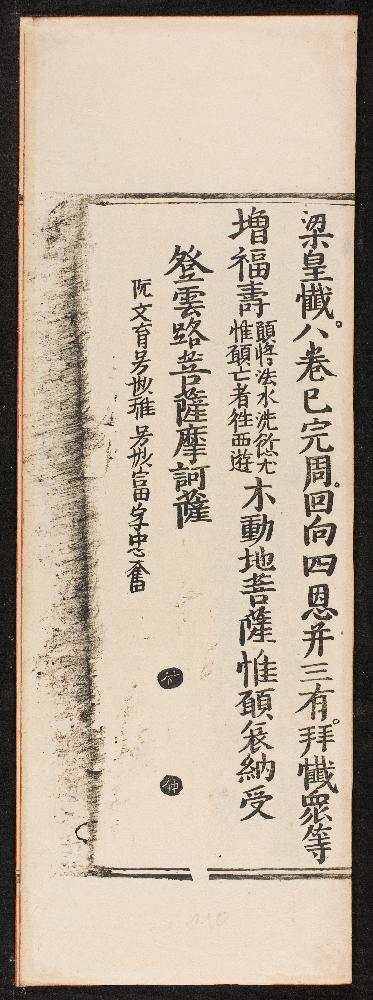 梁皇懺八卷已完周。回向四恩并三有。拜懺眾等
增福壽願將法水洗愆尤惟願亡者往西遊不動地菩薩惟願哀納受
登雲路菩薩摩訶薩
阮文育号妙雅 号妙富字忠奮